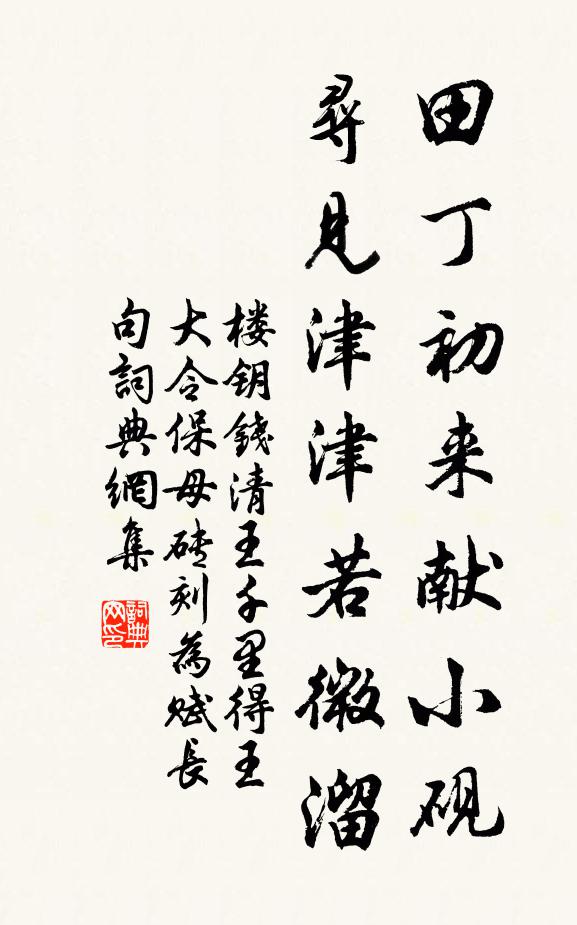 田丁初来献小砚
尋見津津若微溜
楼钥錢清王千里得王
大令保母磚刻為赋長
句詞典網集
詞典
网印